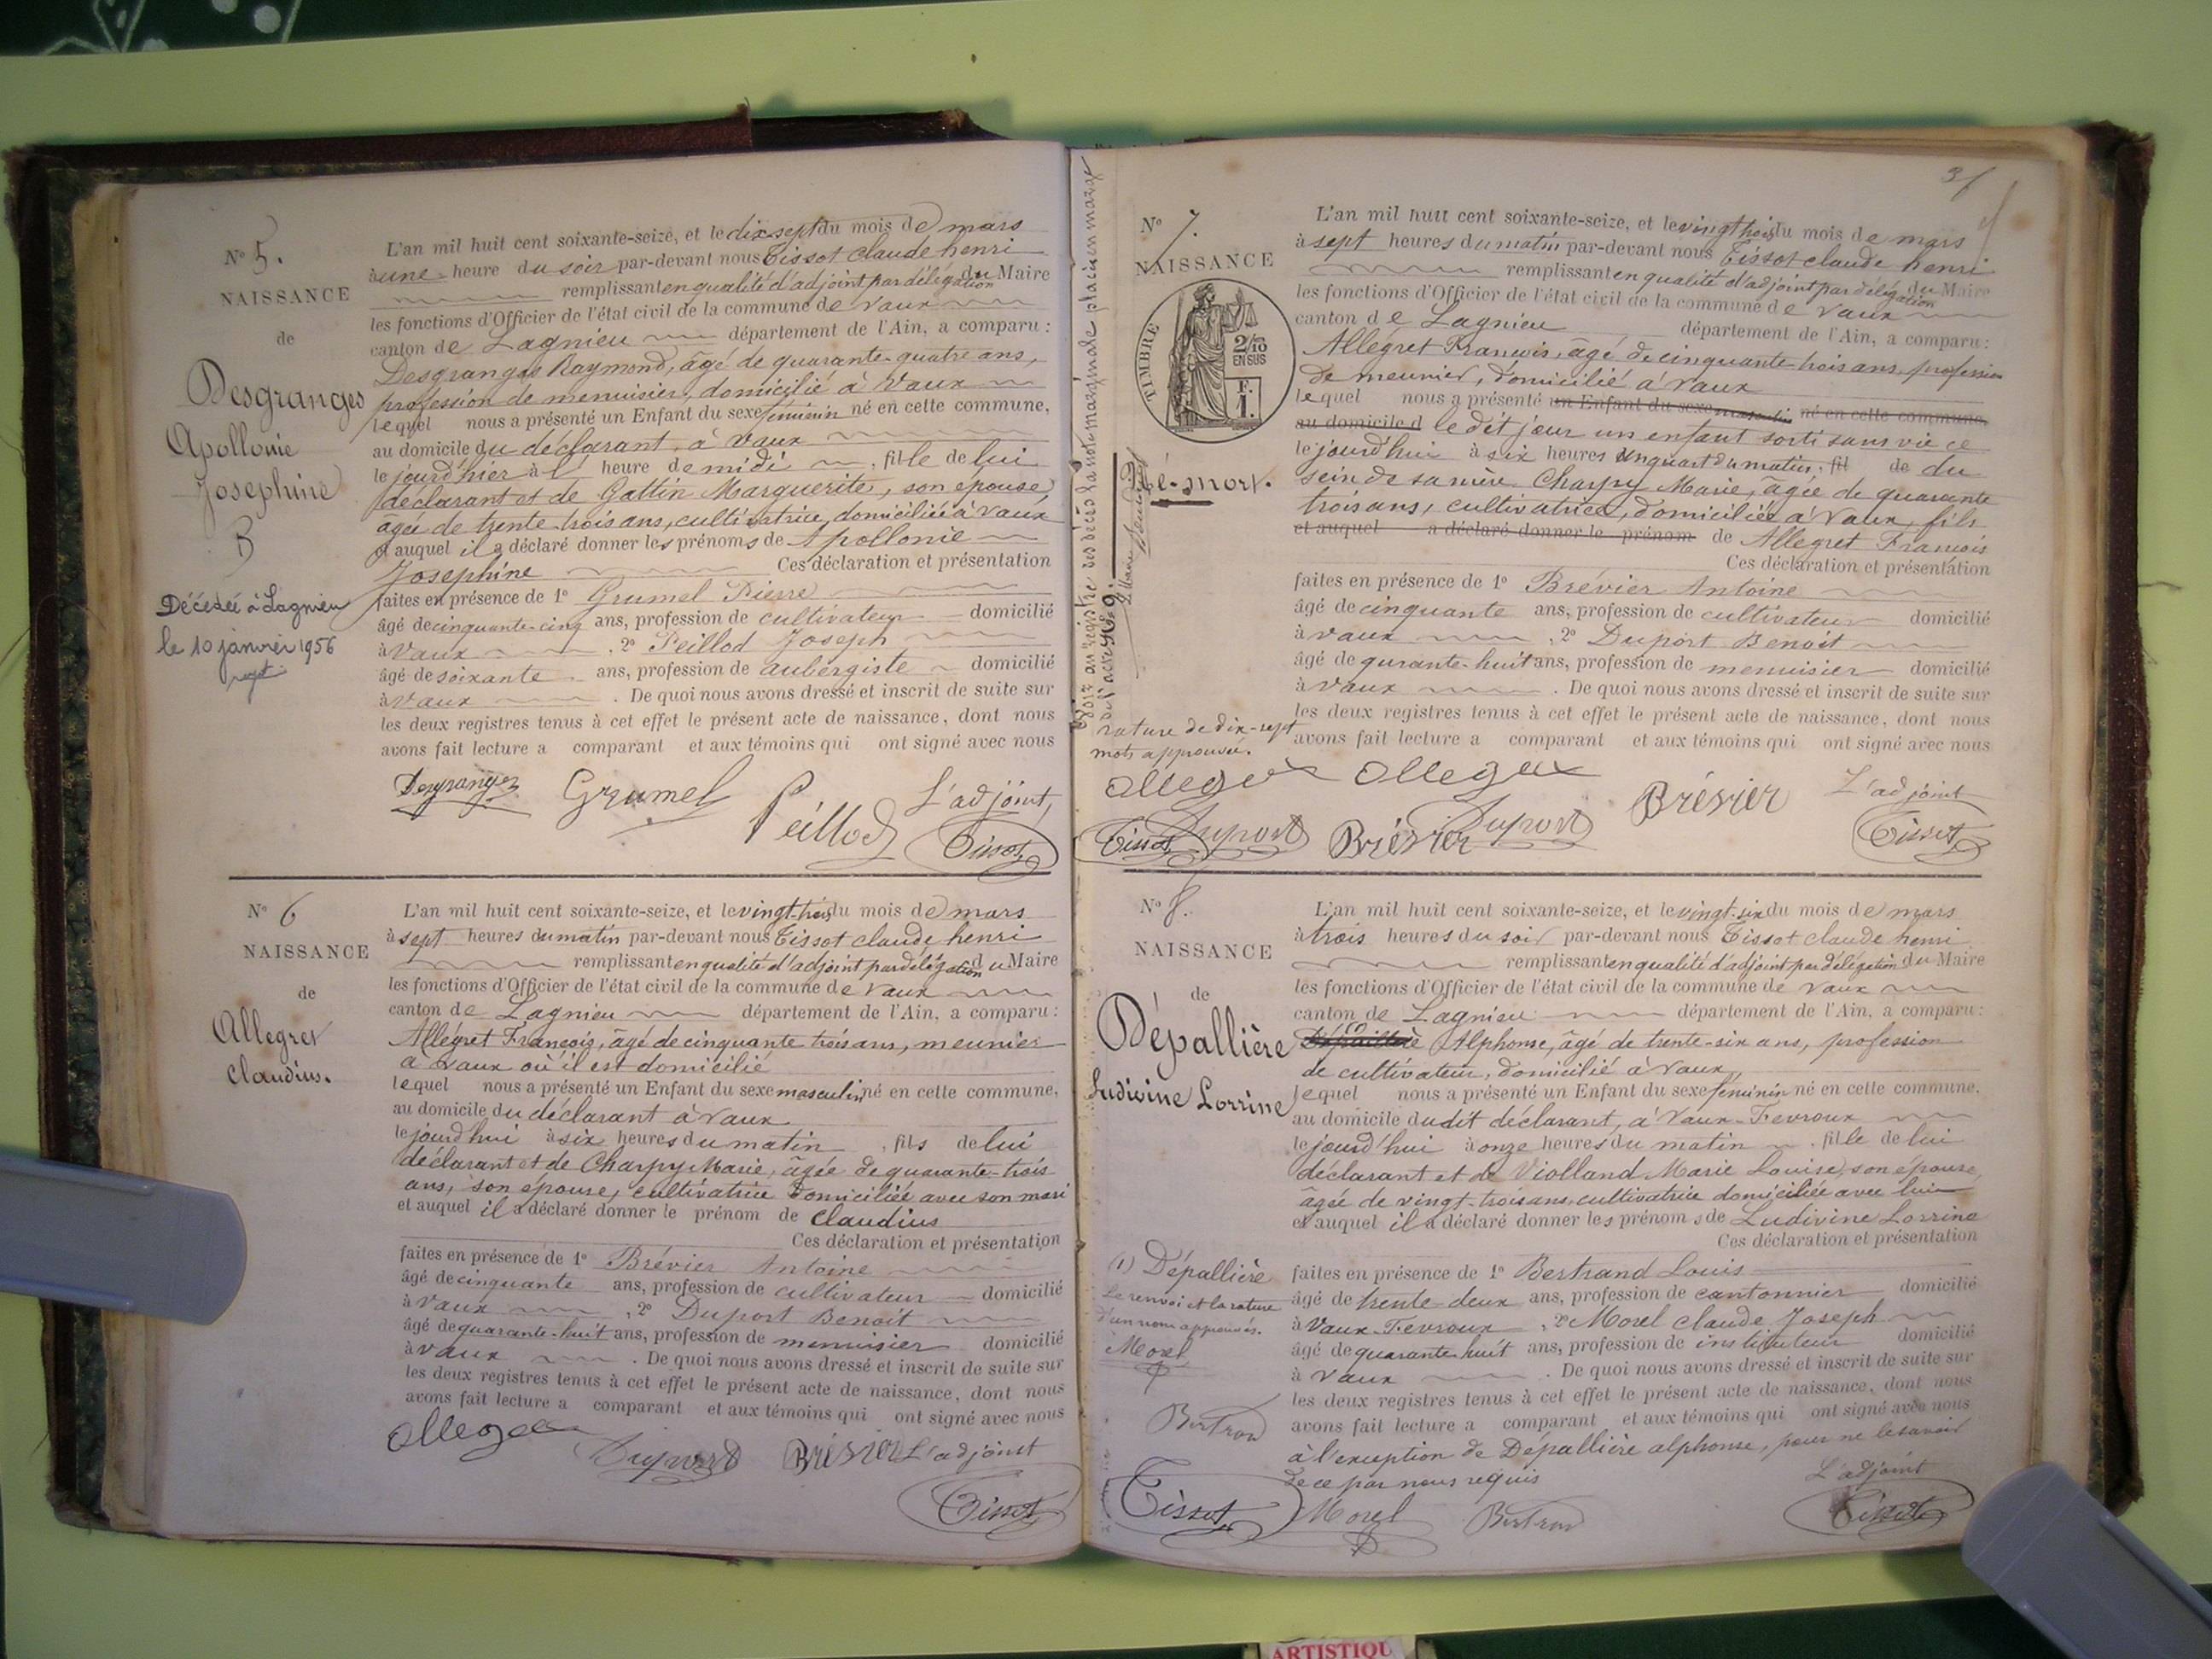 N° 5.
NAISSANCE
de
Desgranges
Apollonie
Josephine
B
Décédée à Lagnieu
le 10 janvier 1956
L'an mil huit cent soixante-seize, et le dix sept du mois de mars
à une heure du soir par-devant nous Tissot claude henri
remplissant en qualité d'adjoint par délégation du Maire
les fonctions d'Officier de l'état civil de la commune de Vaux
canton de Lagnieu département de l'Ain, a comparu :
Desgranges Raymond, âgé de quarante-quatre ans,
profession de menuisier, domicilié à Vaux
lequel nous a présenté un Enfant du sexe féminin né en cette commune,
au domicile du déclarant, à Vaux
le jourd'hier à l' heure de midi, fille de lui
déclarant et de Gattin Marguerite, son épouse,
âgée de trente-trois ans, cultivatrice, domiciliée à Vaux
et auquel il a déclaré donner les prénoms de Apollonie
Josephine Ces déclaration et présentation
faites en présence de 1° Grumel Pierre
âgé de cinquante-cinq ans, profession de cultivateur domicilié
à Vaux, 2° Peillod Joseph
âgé de soixante ans, profession de aubergiste domicilié
à Vaux. De quoi nous avons dressé et inscrit de suite sur
les deux registres tenus à cet effet le présent acte de naissance, dont nous
avons fait lecture a comparant et aux témoins qui ont signé avec nous
Desgranges Grumel Peillod L'adjoint,
Tissot
N° 6
NAISSANCE
de
Allegret
Claudius.
L'an mil huit cent soixante-seize, et le vingt-trois du mois de mars
à sept heures du matin par-devant nous Tissot claude henri
remplissant en qualité d'adjoint par délégation du Maire
les fonctions d'Officier de l'état civil de la commune de Vaux
canton de Lagnieu département de l'Ain, a comparu :
Allégret François, âgé de cinquante trois ans, meunier
à Vaux où il est domicilié
lequel nous a présenté un Enfant du sexe masculin né en cette commune,
au domicile du déclarant à Vaux
le jourd'hui à six heures du matin, fils de lui
déclarant et de Charpy Marie, âgée de quarante-trois
ans, son épouse, cultivatrice domiciliée avec son mari
et auquel il a déclaré donner le prénom de Claudius
Ces déclaration et présentation
faites en présence de 1° Brévier Antoine
âgé de cinquante ans, profession de cultivateur domicilié
à Vaux, 2° Duport Benoit
âgé de quarante-huit ans, profession de menuisier domicilié
à Vaux. De quoi nous avons dressé et inscrit de suite sur
les deux registres tenus à cet effet le présent acte de naissance, dont nous
avons fait lecture a comparant et aux témoins qui ont signé avec nous
Duport Brévier L'adjoint
Tissot
N° 7.
NAISSANCE
TIMBRE
2/10
EN SUS
F.
1.
né-mort.
Voir au registre des décès la note marginale placée en marge
de l'acte N° 9.
rature de dix-sept
mots approuvée.
L'an mil huit cent soixante-seize, et le vingt trois du mois de mars
à sept heures du matin par-devant nous Tissot claude henri
remplissant en qualité d'adjoint par délégation du Maire
les fonctions d'Officier de l'état civil de la commune de Vaux
canton de Lagnieu département de l'Ain, a comparu :
Allégret François, âgé de cinquante-trois ans, profession
de meunier, domicilié à Vaux
lequel nous a présenté un Enfant du sexe masculin né en cette commune,
au domicile d le dit jour un enfant sorti sans vie ce
le jourd'hui à six heures un quart du matin, fil de du
sein de sa mère Charpy Marie, âgée de quarante
trois ans, cultivatrice, domiciliée à Vaux, fils
et auquel a déclaré donner le prénom de Allégret François
Ces déclaration et présentation
faites en présence de 1° Brévier Antoine
âgé de cinquante ans, profession de cultivateur domicilié
à Vaux, 2° Duport Benoit
âgé de qurante-huit ans, profession de menuisier domicilié
à Vaux. De quoi nous avons dressé et inscrit de suite sur
les deux registres tenus à cet effet le présent acte de naissance, dont nous
avons fait lecture a comparant et aux témoins qui ont signé avec nous
Brévier L'adjoint
Tissot Duport Brévier Duport Tissot
N° 8.
NAISSANCE
de
Dépallière
Ludivine Lorrine
(1) Dépallière
Le renvoi et la rature
d'un nom approuvés.
Morel
Bertrand
Tissot
L'an mil huit cent soixante-seize, et le vingt-six du mois de mars
à trois heures du soir par-devant nous Tissot claude henri
remplissant en qualité d'adjoint par délégation du Maire
les fonctions d'Officier de l'état civil de la commune de Vaux
canton de Lagnieu département de l'Ain, a comparu :
(1) Alphonse, âgé de trente-six ans, profession
de cultivateur, domicilié à Vaux,
lequel nous a présenté un Enfant du sexe féminin né en cette commune.
au domicile dudit déclarant, à Vaux-Fevroux
le jourd'hui à onze heures du matin, fille de lui
déclarant et de Violland Marie Louise, son épouse,
âgée de vingt-trois ans, cultivatrice domiciliée avec lui
et auquel il a déclaré donner les prénoms de Ludivine Lorrine
Ces déclaration et présentation
faites en présence de 1° Bertrand Louis
âgé de trente-deux ans, profession de cantonnier domicilié
à Vaux-Fevroux, 2° Morel claude Joseph
âgé de quarante huit ans, profession de instituteur domicilié
à Vaux. De quoi nous avons dressé et inscrit de suite sur
les deux registres tenus à cet effet le présent acte de naissance, dont nous
avons fait lecture a comparant et aux témoins qui ont signé avec nous
à l'exception de Dépallière alphonse, pour ne le savoir
de ce par nous requis
Morel Bertrand L'adjoint
Tissot
ARTISTIQU